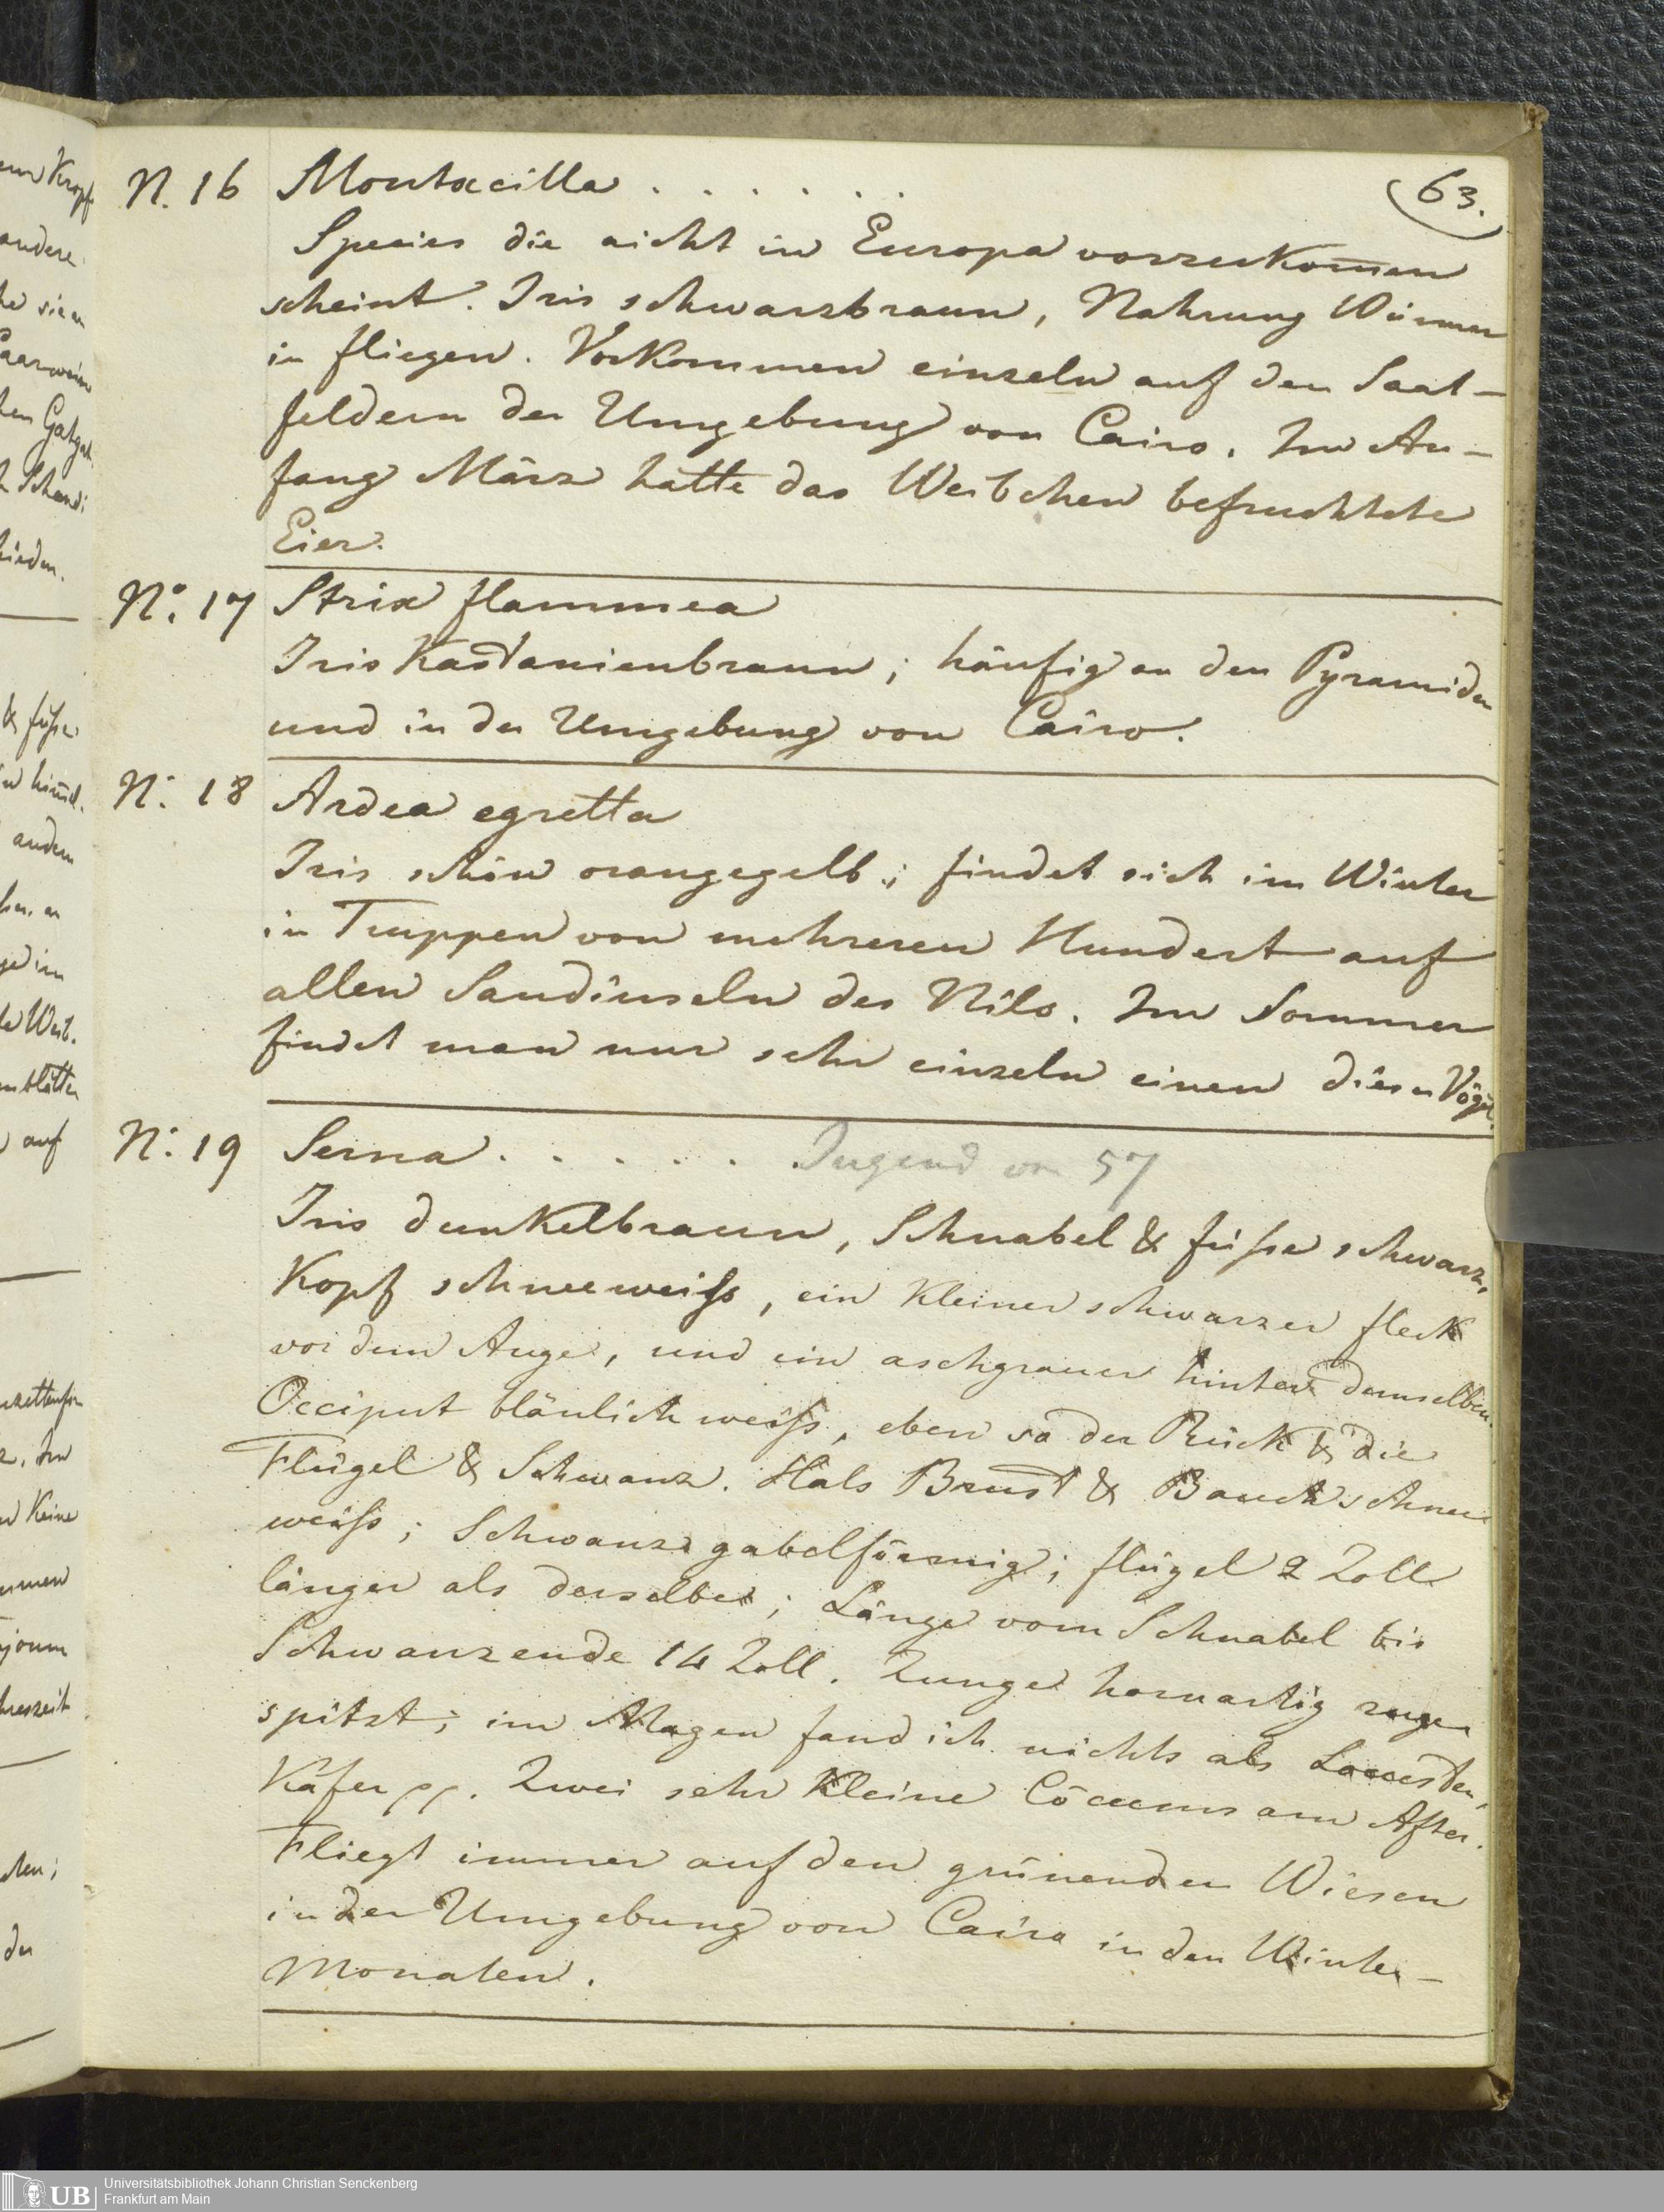 63.
N. 16 Montacilla . . . . . . .
Species die nicht in Europa vorzukom̄en
scheint. Iris schwarzbraun, Nahrung Würmer
in fliegen. Vorkommen einzeln auf den Saat-
feldern der Umgebung von Cairo. Im An-
fang März hatte das Weibchen befruchtete
Eier.
N°. 17 Strix flammea
Iris Kastanienbraun; häufig an den Pyramiden
und in der Umgebung von Cairo.
N: 18 Ardea egretta
Iris schön orangegelb; findet sich im Winter
in Truppen von mehreren Hundert auf
allen Sandinseln des Nils. Im Sommer
findet man nur sehr einzeln einen dieser Vögel.
N: 19 Serna . . . . . . Jugend von 57
Iris dunkelbraun, Schnabel & füsse schwarz,
Kopf schneeweiss, ein kleiner schwarzer fleck
vor dem Auge, und ein aschgrauer hinter demselben.
Occiput bläulich weiss, eben so der Rück & die
Flügel & Schwanz. Hals Brust & Bauch schnee
weiss; Schwanz gabelförmig; flügel 2 Zoll
länger als derselbe; Länge vom Schnabel bis
Schwanzende 14 Zoll. Zunge hornartig zuge
spitzt; im Magen fand ich nichts als Locusten,
Käfer pp. Zwei sehr kleine Cöcums am After.
Fliegt immer auf den grünenden Wiesen
in der Umgebung von Cairo in den Winter-
Monaten.
em Kropf
andere
hieden.
& füsse
andern
ged im
auf
Keine
der
UB
Universitätsbibliothek Johann Christian Senckenberg
Frankfurt am Main